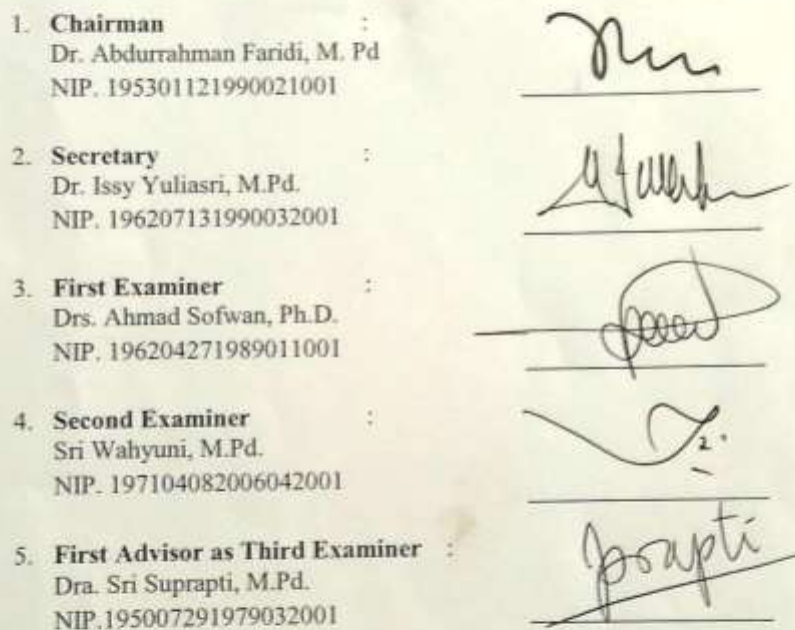 1. Chairman :
Dr. Abdurrahman Faridi, M. Pd
NIP. 195301121990021001
2. Secretary :
Dr. Issy Yuliasri, M.Pd.
NIP. 196207131990032001
3. First Examiner :
Drs. Ahmad Sofwan, Ph.D.
NIP. 196204271989011001
4. Second Examiner :
Sri Wahyuni, M.Pd.
NIP. 197104082006042001
5. First Advisor as Third Examiner :
Dra. Sri Suprapti, M.Pd.
NIP.195007291979032001